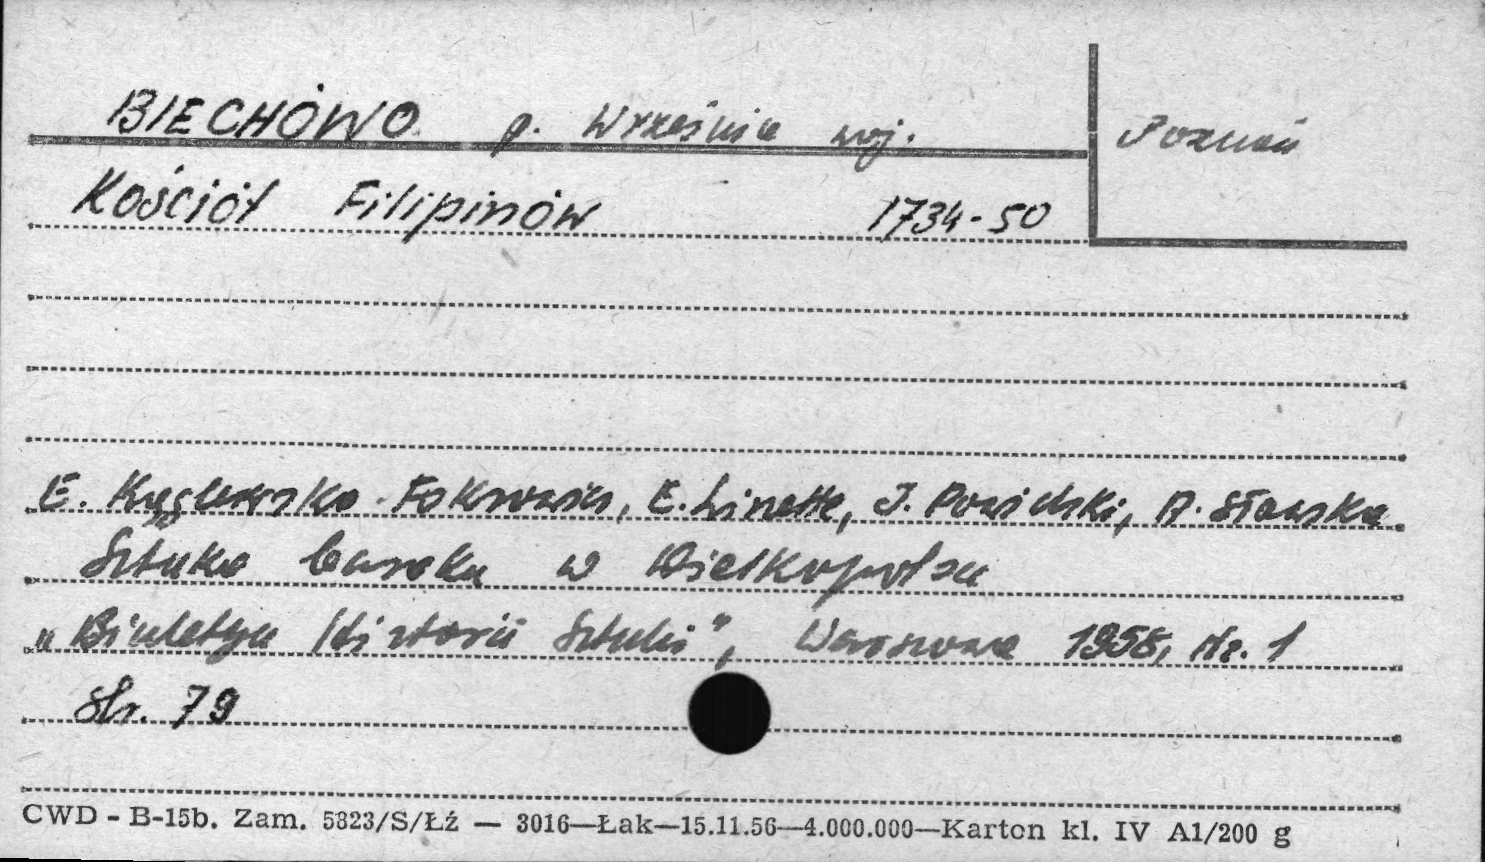 BIECHOWO p. Września woj. Poznań
Kościół Filipinów 1734-50
E. Kręglewska-Foksowicz, E. Linette, J. Powidzki, A. Sławska
Sztuka baroku w Wielkopolsce
„Biuletyn Historii Sztuki", Warszawa 1958, Nr. 1
str. 79
CWD - B-15b. Zam. 5823/S/Łź — 3016—Łak—15.11.56—4.000.000—Karton kl. IV A1/200 g